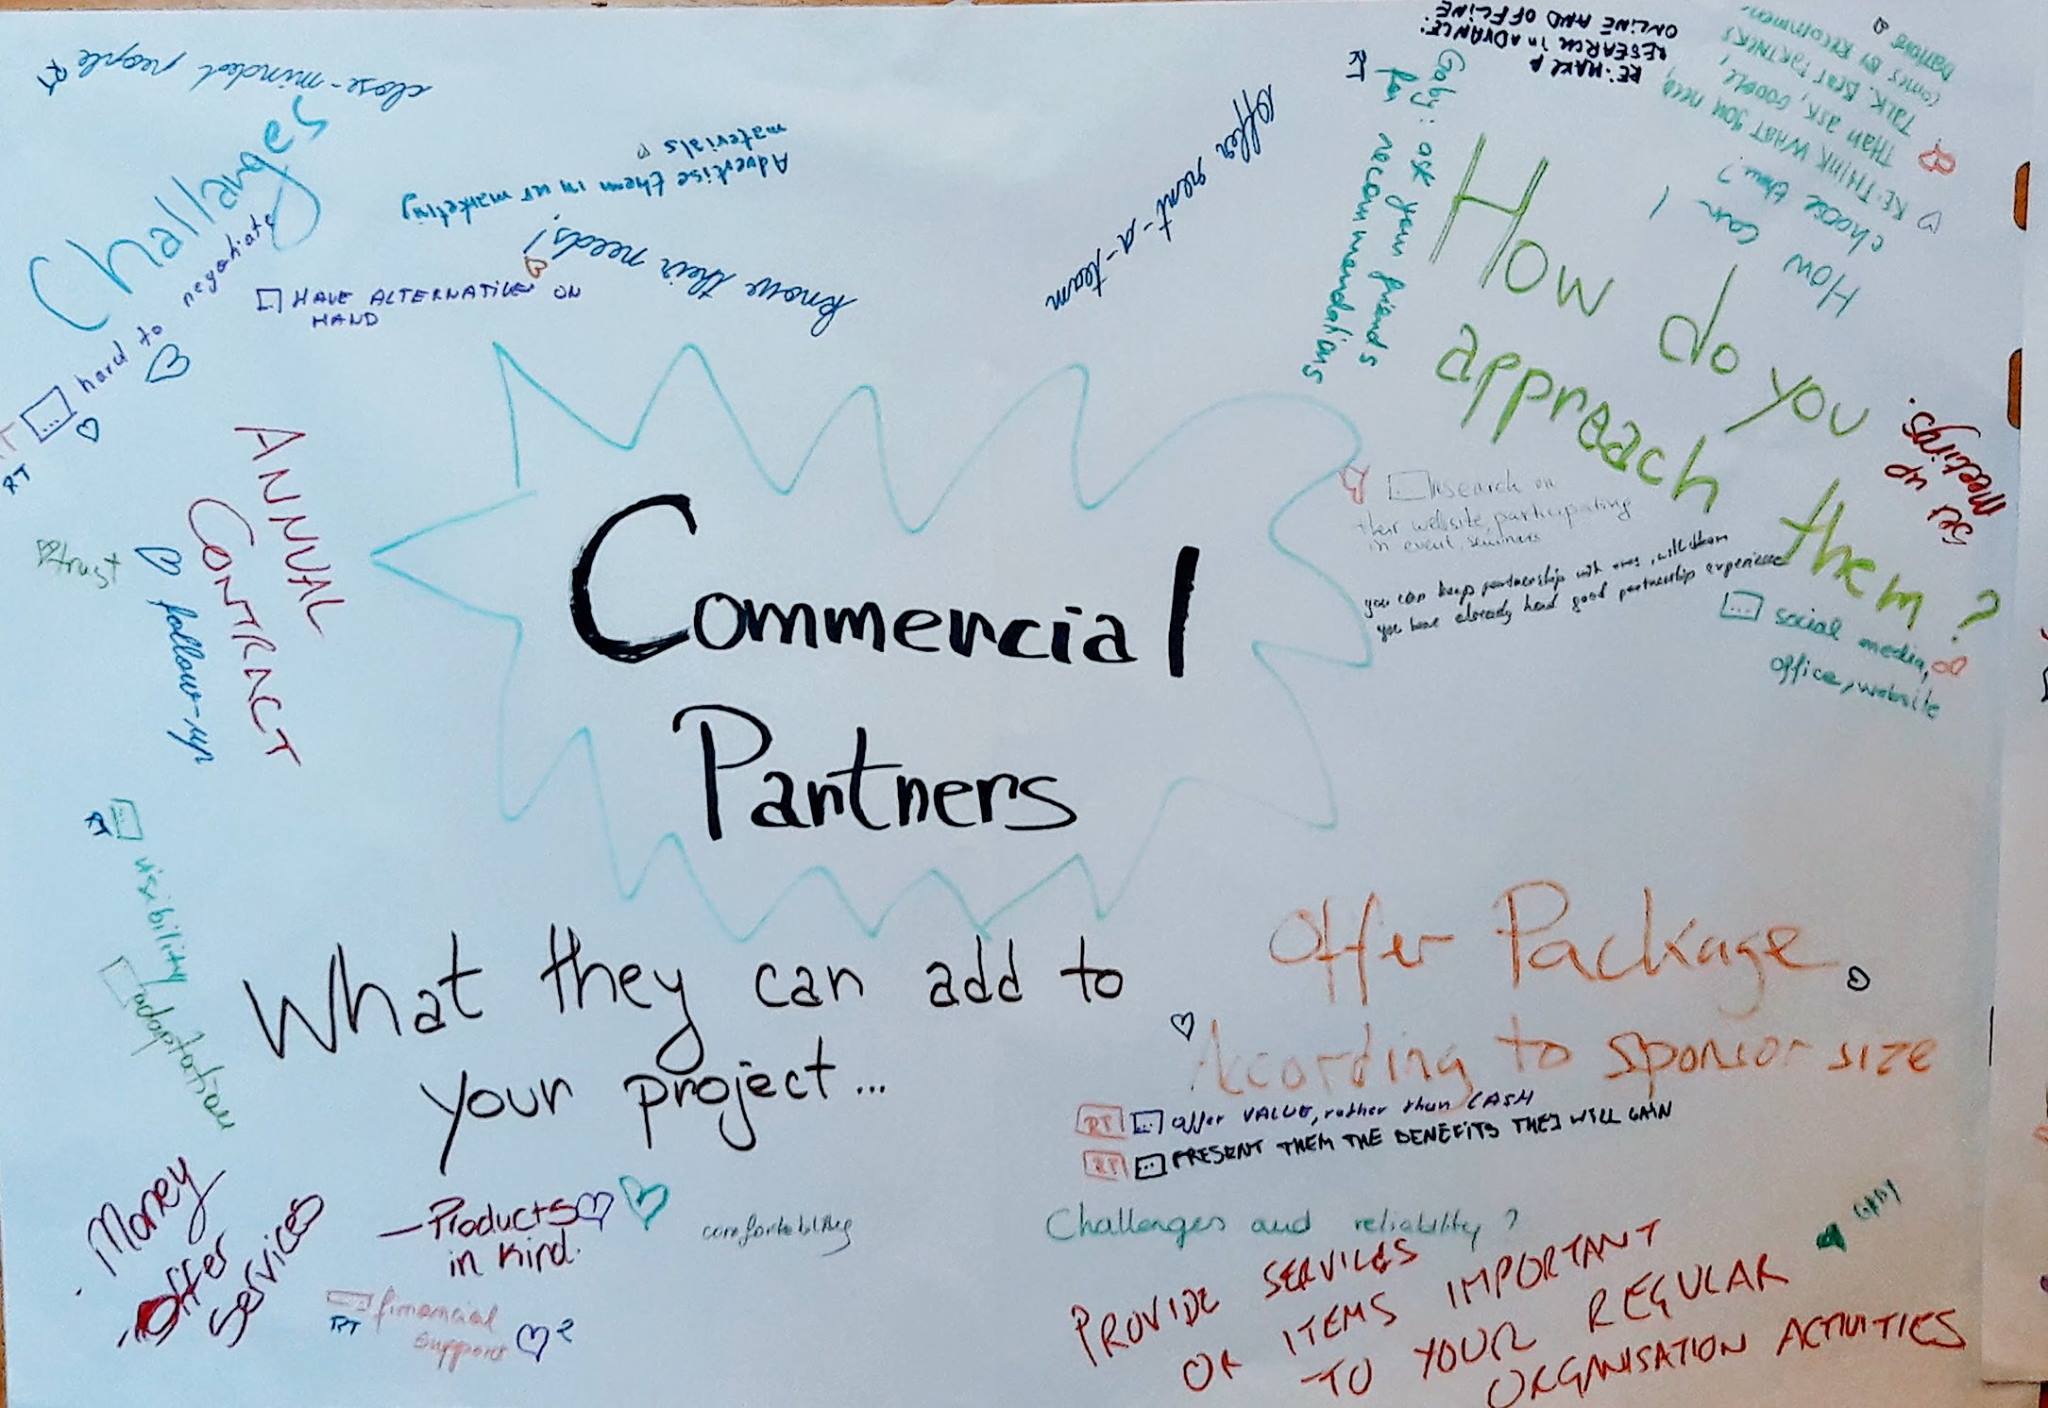 Commercial
Partners
Challenges
close-minded people
RT
hard to
negotiate
RT
HAVE ALTERNATIVES ON
HAND
Advertise them in ur marketing
materials
Know their needs!
Offer rent-a-team
ANNUAL
CONTRACT
follow-up
trust
RT
visibility
adaptation
How do you
approach
them?
RE: MAKE A
RESEARCH in ADVANCE:
ONLINE AND OFFLINE
RT
Gaby: ask your friends
for recommendations
How can I
choose them?
RE: THINK WHAT YOU NEED,
THAN ASK, GOOGLE,
TALK. BEST PARTNERS
comes BY RECOMMEN-
DATIONS
Set up
Meetings.
research on
their website, participating
in event, seminars
you can keep partnership with ones, will them
you have already had good partnership experience
social media,
office, website
What they can add to
your project...
Money
Offer
Services
- Products
in kind.
financial
support
RT
2
comfortability
Offer Package
According to sponsor size
RT offer VALUE, rather than CASH
RT PRESENT THEM THE BENEFITS THEY WILL GAIN
Challenges and reliability?
GABY
PROVIDE SERVICES
OR ITEMS IMPORTANT
TO YOUR REGULAR
ORGANISATION ACTIVITIES